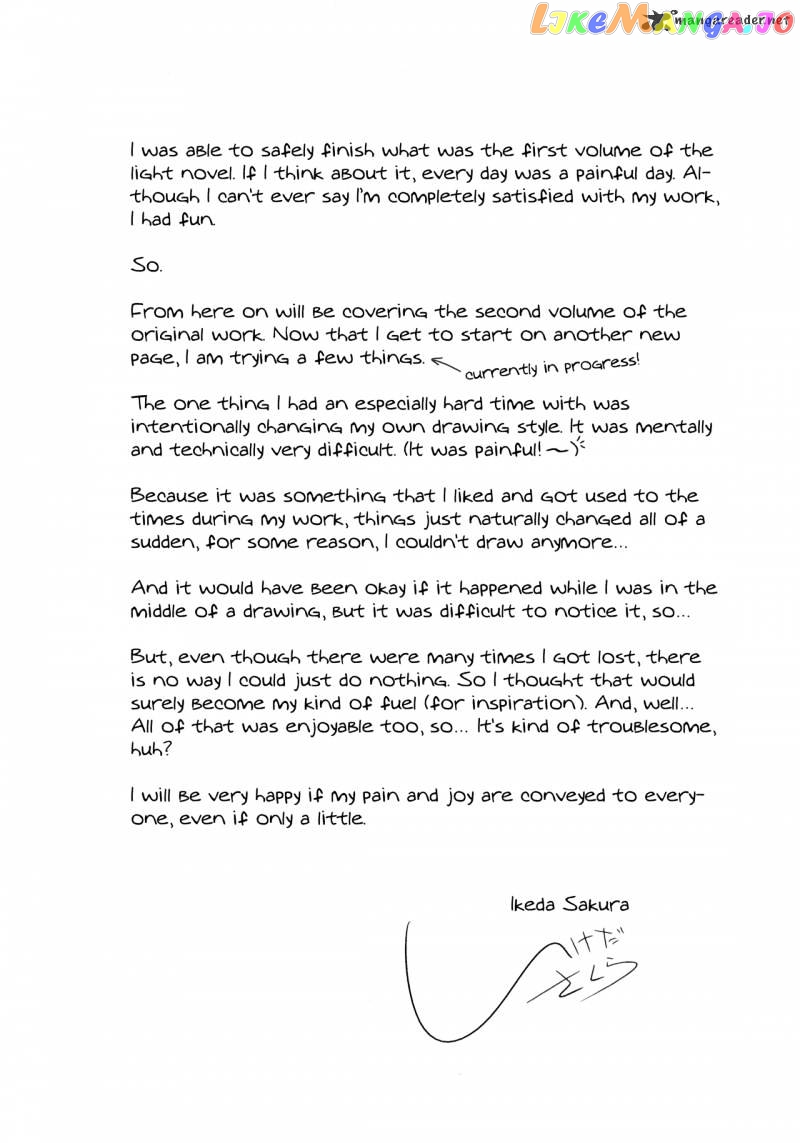 LIKEMANGA.IO
mangareader.net
I was able to safely finish what was the first volume of the
light novel. If I think about it, every day was a painful day. Al-
though I can't ever say I'm completely satisfied with my work,
I had fun.
So.
From here on will be covering the second volume of the
original work. Now that I get to start on another new
page, I am trying a few things.
currently in progress!
The one thing I had an especially hard time with was
intentionally changing my own drawing style. It was mentally
and technically very difficult. (It was painful! ~)
Because it was something that I liked and got used to the
times during my work, things just naturally changed all of a
sudden, for some reason, I couldn't draw anymore...
And it would have been okay if it happened while I was in the
middle of a drawing, but it was difficult to notice it, so...
But, even though there were many times I got lost, there
is no way I could just do nothing. So I thought that would
surely become my kind of fuel (for inspiration). And, well...
All of that was enjoyable too, so... It's kind of troublesome,
huh?
I will be very happy if my pain and joy are conveyed to every-
one, even if only a little.
Ikeda Sakura
いけだ
さくら